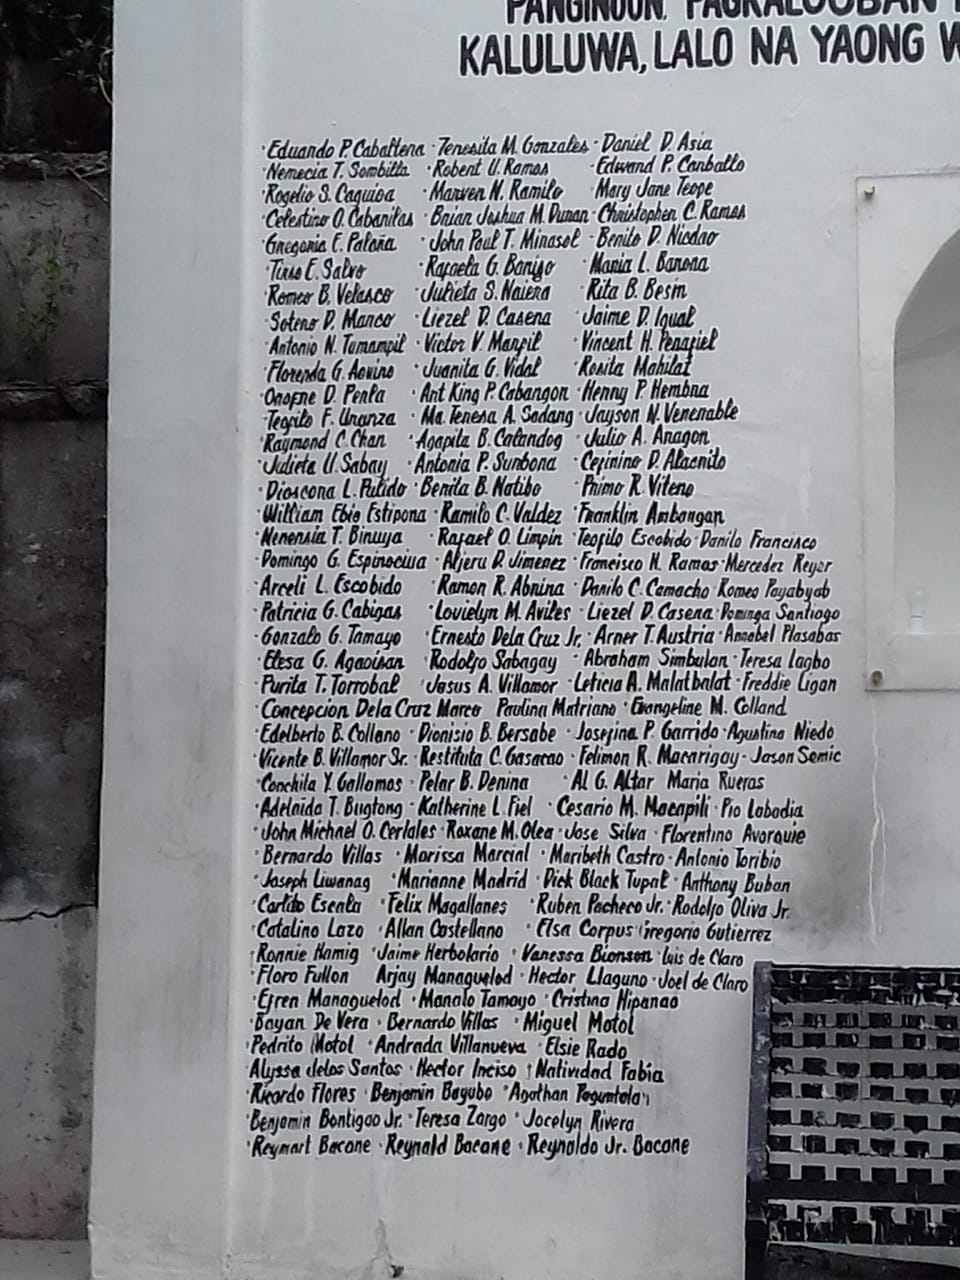 PANGINOON, PAGKALOOBAN
KALULUWA, LALO NA YAONG W
·Eduando P. Cabaltena ·Tenesita M. Gonzales ·Daniel D. Asia
·Nemecia T. Sombilla ·Robent U. Ramos ·Edwand P. Canballo
·Rogelio S. Caguioa ·Manven N. Ramilo ·Mary Jane Teope
·Celestino O. Cabanilas ·Brian Joshua M. Duman ·Christophen C. Ramos
·Gnegonia E. Palaña ·John Paul T. Minasol ·Benito D. Nicdao
·Tinso E. Salvo ·Rafaela G. Baniso ·Mania L. Banona
·Romeo B. Velasco ·Julieta S. Naiena ·Rita B. Besin
·Soteno D. Manco ·Liezel D. Casena ·Jaime D. Igual
·Antonio N. Tumampil ·Victor V. Manfil ·Vincent H. Penafiel
·Florenda G. Aquino ·Juanita G. Vidal ·Rosita Mahilat
·Onofne D. Penla ·Ant King P. Cabangon ·Henny P. Hembna
·Teofilo F. Unanza ·Ma. Tenesa A. Sadang ·Jayson N. Venenable
·Raymond C. Chan ·Agapita B. Calandog ·Julio A. Anagon
·Julieta U. Sabay ·Antonia P. Sunbona ·Cefinino D. Alacnito
·Dioscona L. Pulido ·Benita B. Natibo ·Pnimo R. Viteno
·William Ebio Estipona ·Ramilo C. Valdez ·Franklin Ambongan
·Nenensia T. Binuya ·Rafael O. Limpin ·Teofilo Escobido ·Danilo Francisco
·Domingo G. Espinociua ·Aljeru D. Jimenez ·Francisco N. Ramas ·Mercedez Reyer
·Arceli L. Escobido ·Ramon R. Abnina ·Danilo C. Camacho Romeo Payabyab
·Patricia G. Cabigas ·Lovielyn M. Aviles ·Liezel D. Casena ·Dominga Santiago
·Gonzalo G. Tamayo ·Ernesto Dela Cruz Jr, ·Arner T. Austria ·Annabel Plasabas
·Elesa G. Agaoisan ·Rodolfo Sabagay ·Abraham Simbulan ·Teresa Lagbo
·Purita T. Torrobal ·Jesus A. Villamor ·Leticia A. Malatbalat ·Freddie Ligan
·Concepcion Dela Cruz Marco Paulina Matriano ·Evangeline M. Colland
·Edelberto B. Collano ·Dionisio B. Bersabe ·Josefina P. Garrido ·Agustina Niedo
·Vicente B. Villamor Sr. ·Restituta C. Gasacao ·Felimon R. Macarigay ·Jason Semic
·Conchila Y. Gallamos ·Pelar B. Denina ·Al G. Altar Maria Rueras
·Adelaida T. Bugtong ·Katherine L. Fiel ·Cesario M. Macapili ·Pio Labadia
·John Michael O. Cerlales ·Roxane M. Olea ·Jose Silva ·Florentino Avorquie
·Bernardo Villas ·Marissa Marcial ·Maribeth Castro ·Antonio Toribio
·Joseph Liwanag ·Marianne Madrid ·Dick Black Tupal ·Anthony Buban
·Carlito Escala ·Felix Magallanes ·Ruben Pacheco Jr. ·Rodolfo Oliva Jr.
·Catalino Lazo ·Allan Castellano ·Elsa Corpus Gregorio Gutierrez
·Ronnie Hamig ·Jaime Herbolario ·Vanessa Bionson ·Luis de Claro
·Floro Fullon Arjay Managuelod ·Hector Llaguno ·Joel de Claro
·Efren Managuelod ·Manalo Tamayo ·Cristina Hipanao
·Bayan De Vera ·Bernardo Villas ·Miguel Motol
·Pedrito Motol ·Andrada Villanueva ·Elsie Rado
·Alyssa delos Santos ·Hector Inciso ·Natividad Fabia
·Ricardo Flores ·Benjamin Bagubo ·Agathan
·Benjamin Bontigao Jr. ·Teresa Zargo ·Jocelyn Rivera
·Reymart Bacane ·Reynald Bacane ·Reynaldo Jr. Bacane